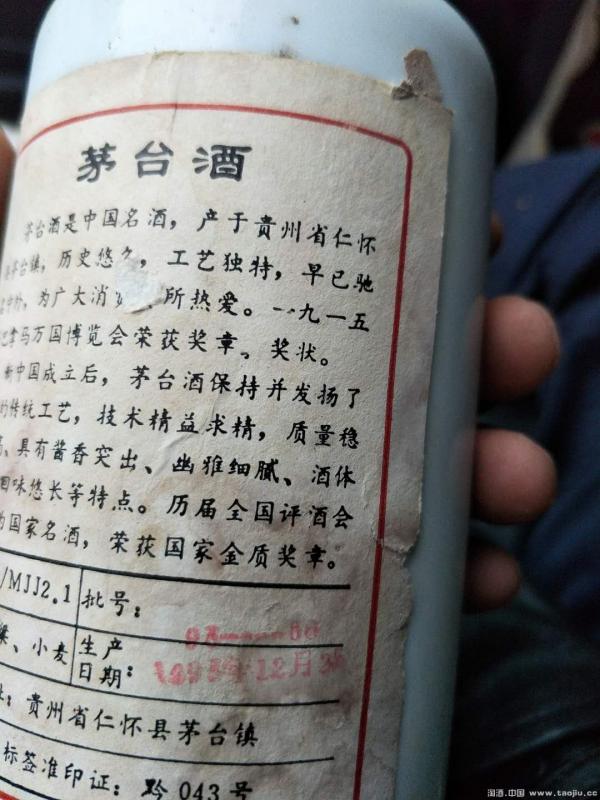 茅台酒
茅台酒是中国名酒，产于贵州省仁怀
茅台镇，历史悠久，工艺独特，早已驰
中外，为广大消 所热爱。一九一五
巴拿马万国博览会荣获奖章、奖状。
新中国成立后，茅台酒保持并发扬了
的传统工艺，技术精益求精，质量稳
高、具有酱香突出、幽雅细腻、酒体
回味悠长等特点。历届全国评酒会
为国家名酒，荣获国家金质奖章。
/MJJ2.1 批号：
、小麦 生产日期： 12月
址：贵州省仁怀县茅台镇
标签准印证：黔043号
淘酒.中国 www.taojiu.cc